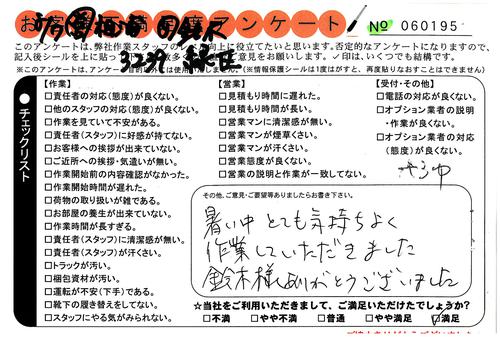 アンケート
No 060195
このアンケートは、弊社作業スタッフのレベル向上に役立てたいと思います。否定的なアンケートになりますので、
✓印は、いくつでも結構です。
チェックリスト
【作業】
□責任者の対応(態度)が良くない。
□他のスタッフの対応(態度)が良くない。
□作業を見ていて不安がある。
□責任者(スタッフ)に好感が持てない。
□お客様への挨拶が出来ていない。
□ご近所への挨拶・気遣いが無い。
□作業開始前の内容確認がなかった。
□作業開始時間が遅れた。
□荷物の取り扱いが雑である。
□お部屋の養生が出来ていない。
□作業時間が長すぎる。
□責任者(スタッフ)に清潔感が無い。
□責任者(スタッフ)が汗くさい。
□トラックが汚い。
□梱包資材が汚い。
□運転が不安(下手)である。
□靴下の履き替えをしてない。
□スタッフにやる気がみられない。
【営業】
□見積もり時間に遅れた。
□見積もり時間が長い。
□営業マンに清潔感が無い。
□営業マンが煙草くさい。
□営業マンが汗くさい。
□営業態度が良くない。
□営業の説明と作業が一致してない。
【受付・その他】
□電話の対応が良くない。
□オプション業者の説明
・作業が良くない。
□オプション業者の対応
(態度)が良くない。
その他、ご意見・ご要望等ありましたらお書き下さい。
暑い中 とても気持ちよく
作業していただきました
鈴木様ありがとうございました
☆当社をご利用いただきまして、ご満足いただけたでしょうか?
□不満 □やや不満 □普通 □やや満足 ☑満足